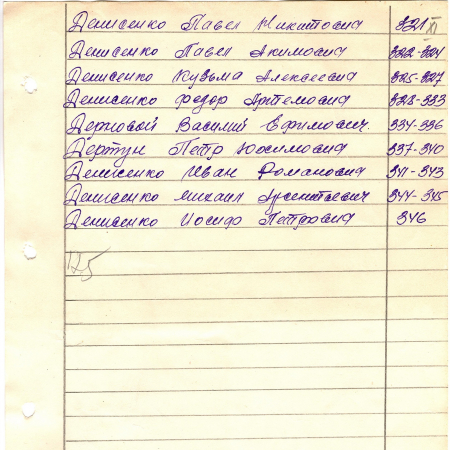 Денисенко Павел Никитович 321
Денисенко Павел Акимович 322-324
Денисенко Кузьма Алексеевич 325-327
Денисенко Федор Артемович 328-333
Дерновой Василий Ефимович. 334-336
Дертун Петр Иосимович 337-340
Денисенко Иван Романович 341-343
Денисенко Михаил Арсентьевич 344-345
Денисенко Иосиф Петрович 346